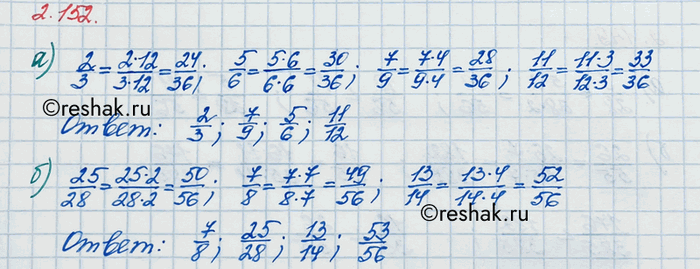 2.152.
а) 2/3 = 2·12/3·12 = 24/36; 5/6 = 5·6/6·6 = 30/36; 7/9 = 7·4/9·4 = 28/36; 11/12 = 11·3/12·3 = 33/36
©reshak.ru
Ответ: 2/3; 7/9; 5/6; 11/12
б) 25/28 = 25·2/28·2 = 50/56; 7/8 = 7·7/8·7 = 49/56; 13/14 = 13·4/14·4 = 52/56
©reshak.ru
Ответ: 7/8; 25/28; 13/14; 53/56